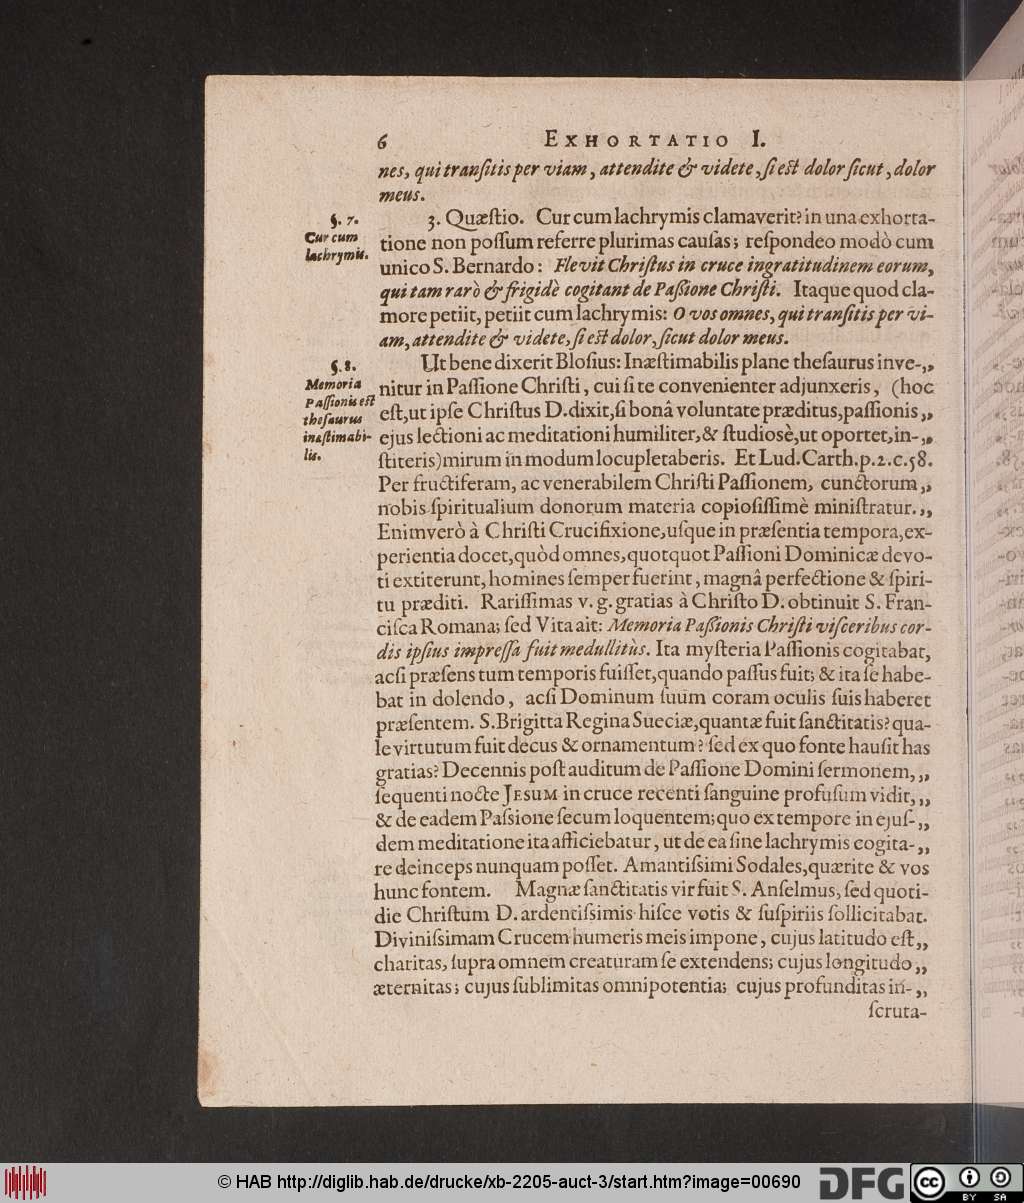 6 EXHORTATIO I.
nes, qui tranſitis per viam, attendite & videte, ſi eſt dolor ſicut, dolor
meus.
§. 7.
Cur cum
lachrymis.
3. Quæſtio. Cur cum lachrymis clamaverit? in una exhorta-
tione non poſſum referre plurimas cauſas; reſpondeo modò cum
unico S. Bernardo: Flevit Chriſtus in cruce ingratitudinem eorum,
qui tam rarò & frigidè cogitant de Paſſione Chriſti. Itaque quod cla-
more petiit, petiit cum lachrymis: O vos omnes, qui tranſitis per vi-
am, attendite & videte, ſi eſt dolor, ſicut dolor meus.
§. 8.
Memoria
Paſſionis eſt
theſaurus
inæſtimabi-
lis.
Ut bene dixerit Bloſius: Inæſtimabilis plane theſaurus inve-„
nitur in Paſſione Chriſti, cui ſi te convenienter adjunxeris, (hoc
eſt, ut ipſe Chriſtus D. dixit, ſi bonâ voluntate præditus, paſſionis „
ejus lectioni ac meditationi humiliter, & ſtudiosè, ut oportet, in-„
ſtiteris) mirum in modum locupletaberis. Et Lud. Carth. p. 2. c. 58.
Per fructiferam, ac venerabilem Chriſti Paſſionem, cunctorum „
nobis ſpiritualium donorum materia copioſiſſimè miniſtratur. „
Enimverò à Chriſti Crucifixione, uſque in præſentia tempora, ex-
perientia docet, quòd omnes, quotquot Paſſioni Dominicæ devo-
ti extiterunt, homines ſemper fuerint, magnâ perfectione & ſpiri-
tu præditi. Rariſſimas v. g. gratias à Chriſto D. obtinuit S. Fran-
ciſca Romana; ſed Vita ait: Memoria Paſſionis Chriſti viſceribus cor-
dis ipſius impreſſa fuit medullitùs. Ita myſteria Paſſionis cogitabat,
acſi præſens tum temporis fuiſſet, quando paſſus fuit; & ita ſe habe-
bat in dolendo, acſi Dominum ſuum coram oculis ſuis haberet
præſentem. S. Brigitta Regina Sueciæ, quantæ fuit ſanctitatis? qua-
le virtutum fuit decus & ornamentum? ſed ex quo fonte hauſit has
gratias? Decennis poſt auditum de Paſſione Domini ſermonem, „
ſequenti nocte JESUM in cruce recenti ſanguine profuſum vidit, „
& de eadem Paſsione ſecum loquentem; quo ex tempore in ejuſ-„
dem meditatione ita afficiebatur, ut de ea ſine lachrymis cogita-„
re deinceps nunquam poſſet. Amantiſsimi Sodales, quærite & vos
hunc fontem. Magnæ ſanctitatis vir fuit S. Anſelmus, ſed quoti-
die Chriſtum D. ardentiſsimis hiſce votis & ſuſpiriis ſollicitabat.
Diviniſsimam Crucem humeris meis impone, cujus latitudo eſt „
charitas, ſupra omnem creaturam ſe extendens; cujus longitudo „
æternitas; cujus ſublimitas omnipotentia; cujus profunditas in-„
ſcruta-
© HAB http://diglib.hab.de/drucke/xb-2205-auct-3/start.htm?image=00690
DFG
cc BY SA